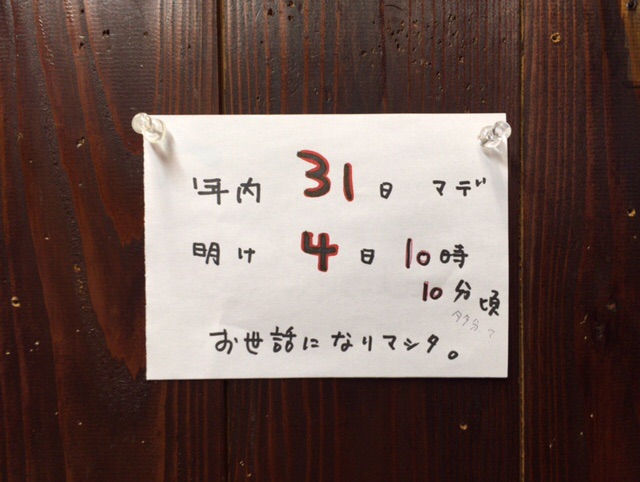 年内 31日 マデ
明け 4日 10時
10分頃
お世話になりマシタ。